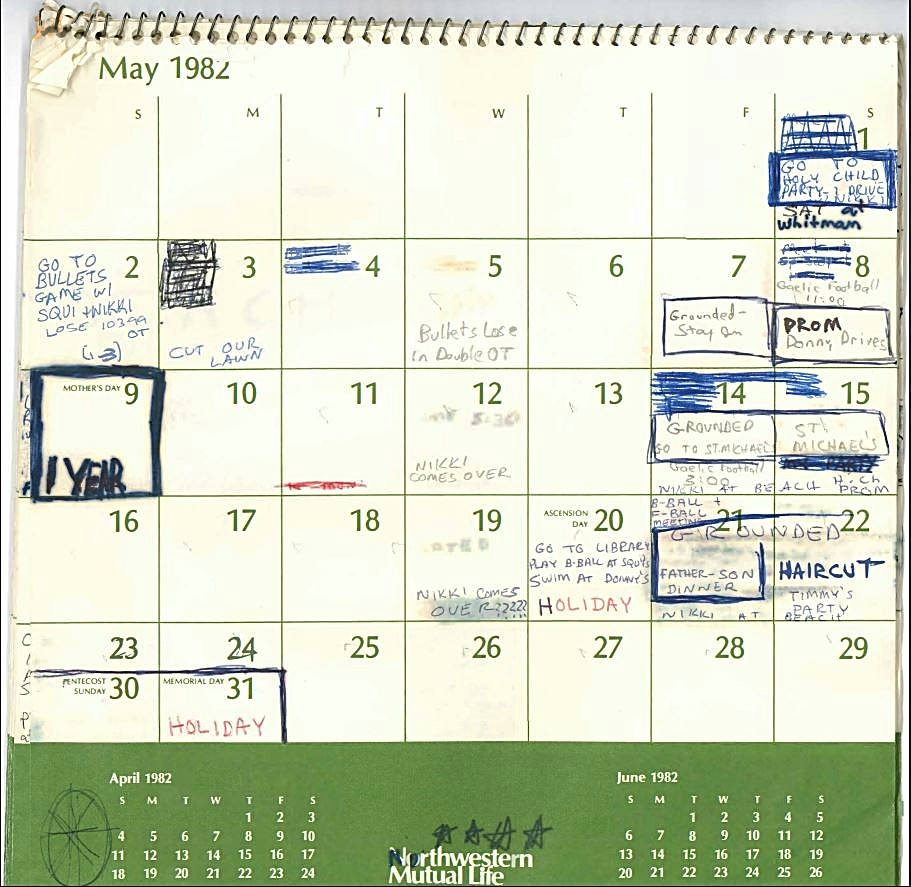 May 1982
S M T W T F S
1
GO TO
HOLY CHILD
PARTY- I DRIVE
NIKKI
SAT at
Whitman
2
GO TO
BULLETS
GAME W/
SQUI + NIKKI
LOSE 103 99
OT
(1-3)
3
CUT OUR
LAWN
4
5
Bullets Lose
in Double OT
6
7
Grounded-
Stay In
8
Gaelic Football
11:00
PROM
Donny Drives
MOTHER'S DAY 9
1 YEAR
10
11
12
5:30
NIKKI
COMES OVER
13
14
GROUNDED
GO TO ST. MICHAEL'S
Gaelic Football
3:00
NIKKI AT BEACH
15
ST.
MICHAEL'S
H. Ch
PROM
16
17
18
19
NIKKI COMES
OVER?????
ASCENSION
DAY 20
GO TO LIBRARY
PLAY B-BALL AT SQUI'S
SWIM AT DONNY'S
HOLIDAY
B-BALL +
F-BALL
MEETING
21
GROUNDED
FATHER-SON
DINNER
NIKKI AT BEACH
22
HAIRCUT
TIMMY'S
PARTY
23
24
25
26
27
28
29
PENTECOST
SUNDAY 30
MEMORIAL DAY 31
HOLIDAY
April 1982
S M T W T F S
1 2 3
4 5 6 7 8 9 10
11 12 13 14 15 16 17
18 19 20 21 22 23 24
Northwestern
Mutual Life
June 1982
S M T W T F S
1 2 3 4 5
6 7 8 9 10 11 12
13 14 15 16 17 18 19
20 21 22 23 24 25 26